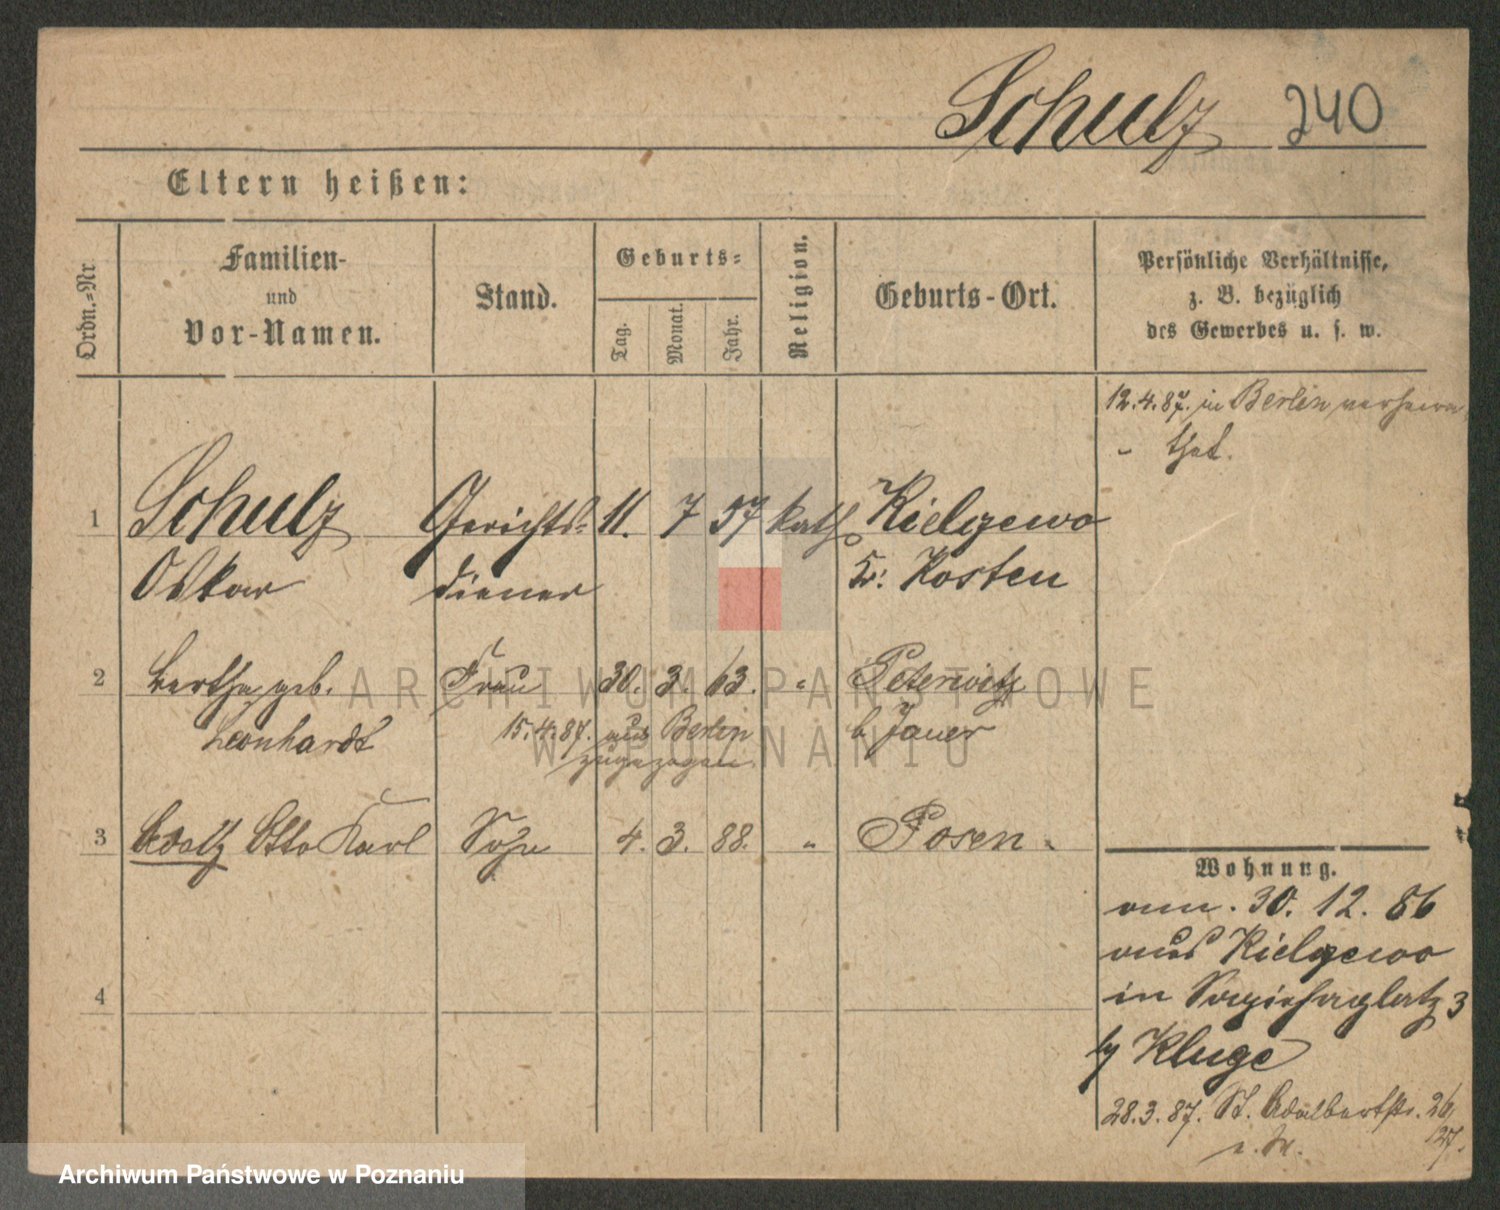 Schulz 240
Eltern heißen:
Ordn.=Nr.
Familien-
und
Vor-Namen.
Stand.
Geburts=
Tag.
Monat.
Jahr.
Religion.
Geburts-Ort.
Persönliche Verhältnisse,
z. B. bezüglich
des Gewerbes u. s. w.
12.4.87. in Berlin verheira
- thet.
1 Schulz Gerichts= 11. 7 57 kath Kielczewo
Oskar diener Kr. Kosten
2 Bertha geb. Frau 30. 3. 63. " Peterwitz
Leonhardt 15.4.87. aus Berlin b Jauer
zugezogen.
3 Adolf Otto Karl Sohn 4. 3. 88. " Posen.
4
Wohnung.
30. 12. 86
aus Kielczewo
in Sapiehaplatz 3
by Kluge
28.3.87. St. Adalbertstr. 26/
127.
ARCHIWUM PAŃSTWOWE
W POZNANIU
Archiwum Państwowe w Poznaniu